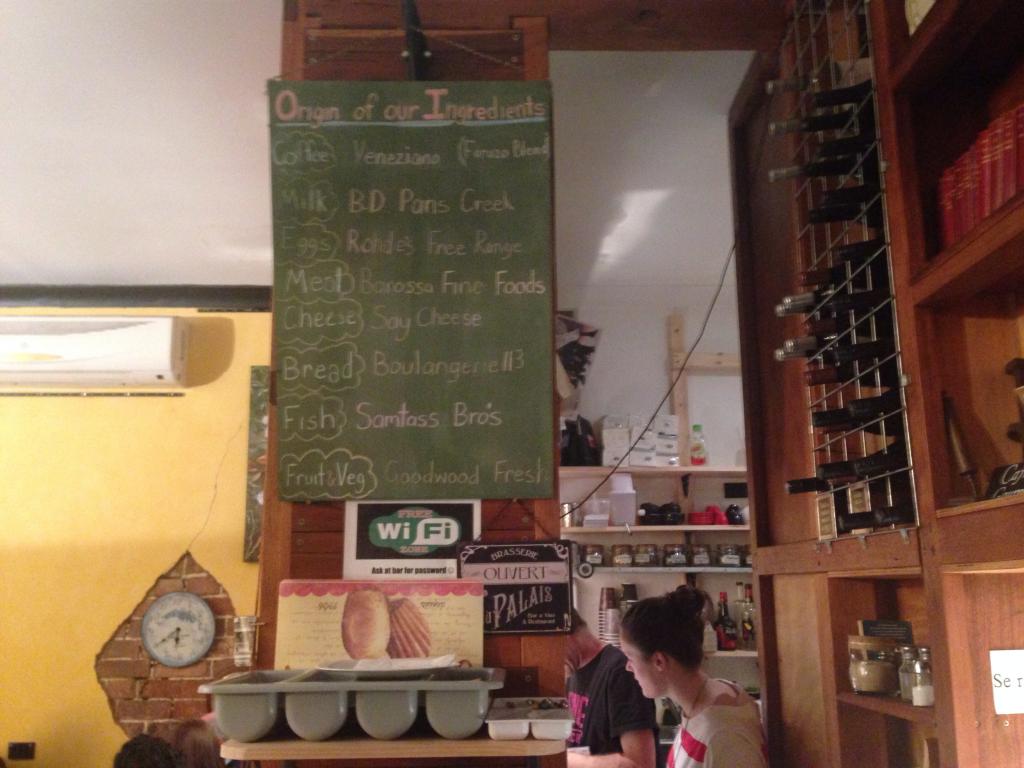 Origin of our Ingredients
Coffee Veneziano (Forozo Blend)
Milk BD Paris Creek
Eggs Rohde's Free Range
Meat Barossa Fine Foods
Cheese Say Cheese
Bread Boulangerie 113
Fish Samtass Bro's
Fruit & Veg Goodwood Fresh
FREE
WiFi
ZONE
Ask at bar for password
BRASSERIE
OUVERT
du PALAIS
Bar a Vins
& Restaurant
Se r